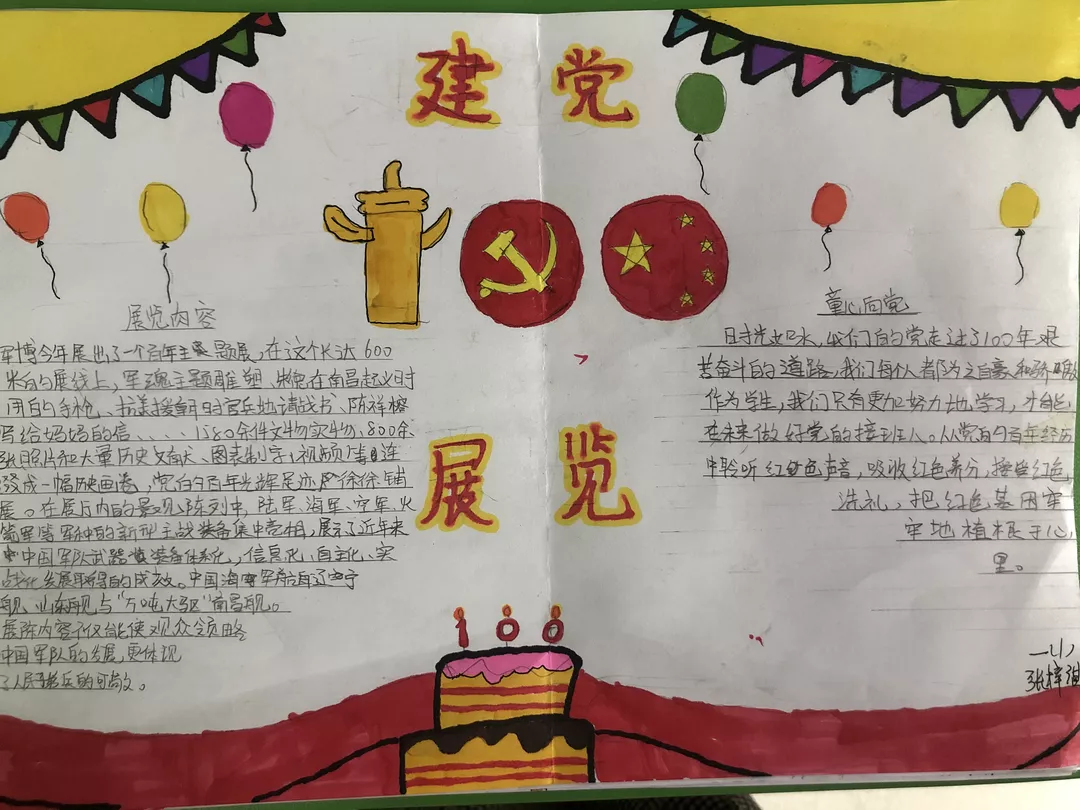 建党
展览
展览内容
军博今年展出了一个百年主题展,在这个长达600
米的展线上,军魂主题雕塑、朱德在南昌起义时
用的手枪、抗美援朝时官兵地请战书、陈祥榕
写给妈妈的信、、、、1580余件文物实物、800余
张照片和大量历史文献、图表制字、视频情目连
缀成一幅历史画卷,党的百年光辉足迹徐徐铺
展。在展厅内的景观陈列中,陆军、海军、空军、火
箭军等军种的新型主战装备集中亮相,展示了近年来
中国军队武器装备体系化、信息化、自主化、实
战化发展取得的成效。中国海军航海辽宁
舰、山东舰与“万吨大驱”南昌舰。
展陈内容不仅能使观众领略
中国军队的发展,更体现
了人民子弟兵的可敬。
童心向党
时光如水,我们的党走过了100年艰
苦奋斗的道路,我们每个人都为之自豪和骄傲
作为学生,我们只有更加努力地学习,才能
在未来做好党的接班人。从党的百年经历
中聆听红色声音,吸收红色养分,接受红色
洗礼,把红色基因牢
牢地植根于心
里。
100
一(1)
张梓